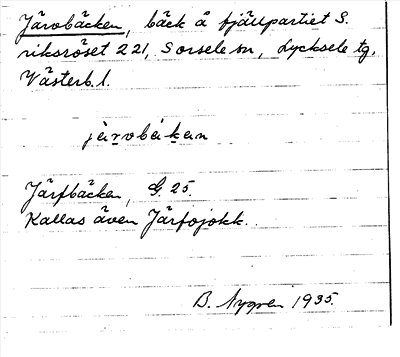 Järvbäcken, bäck å fjällpartiet S.
riksröset 221, Sorsele sn, Lycksele tg,
Västerb. l.
järvbäkan
Järfbäcken, G. 25.
Kallas även Järfojokk.
B. Nygren 1935.